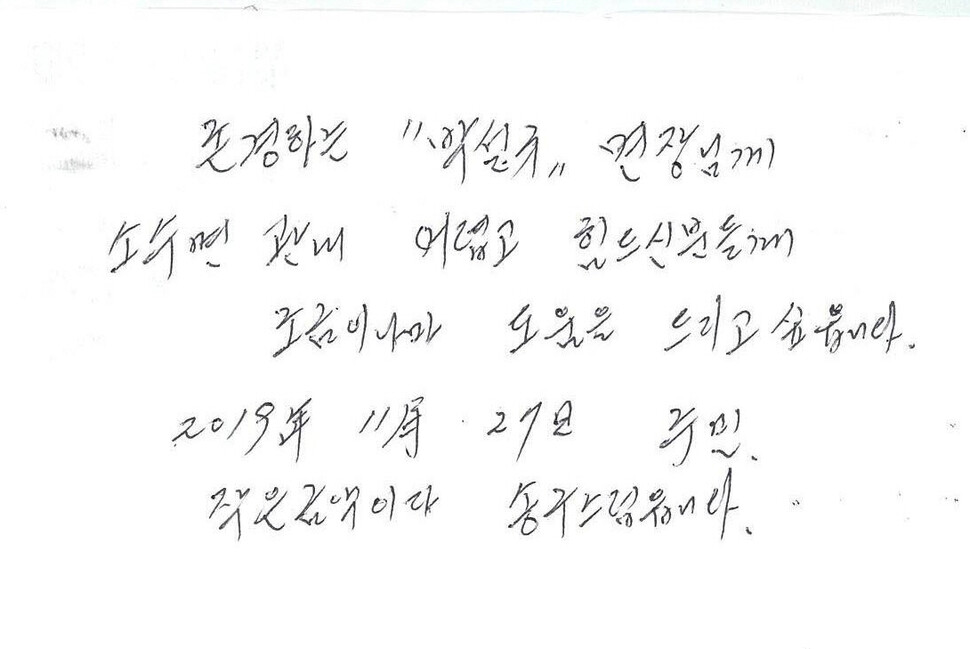 존경하는 "박설규" 면장님게
소수면 관내 어렵고 힘드신분들게
조금이나마 도움을 드리고 싶읍니다.
2019年 11月 27日 주민.
작은금액이다 송구스럽읍니다.